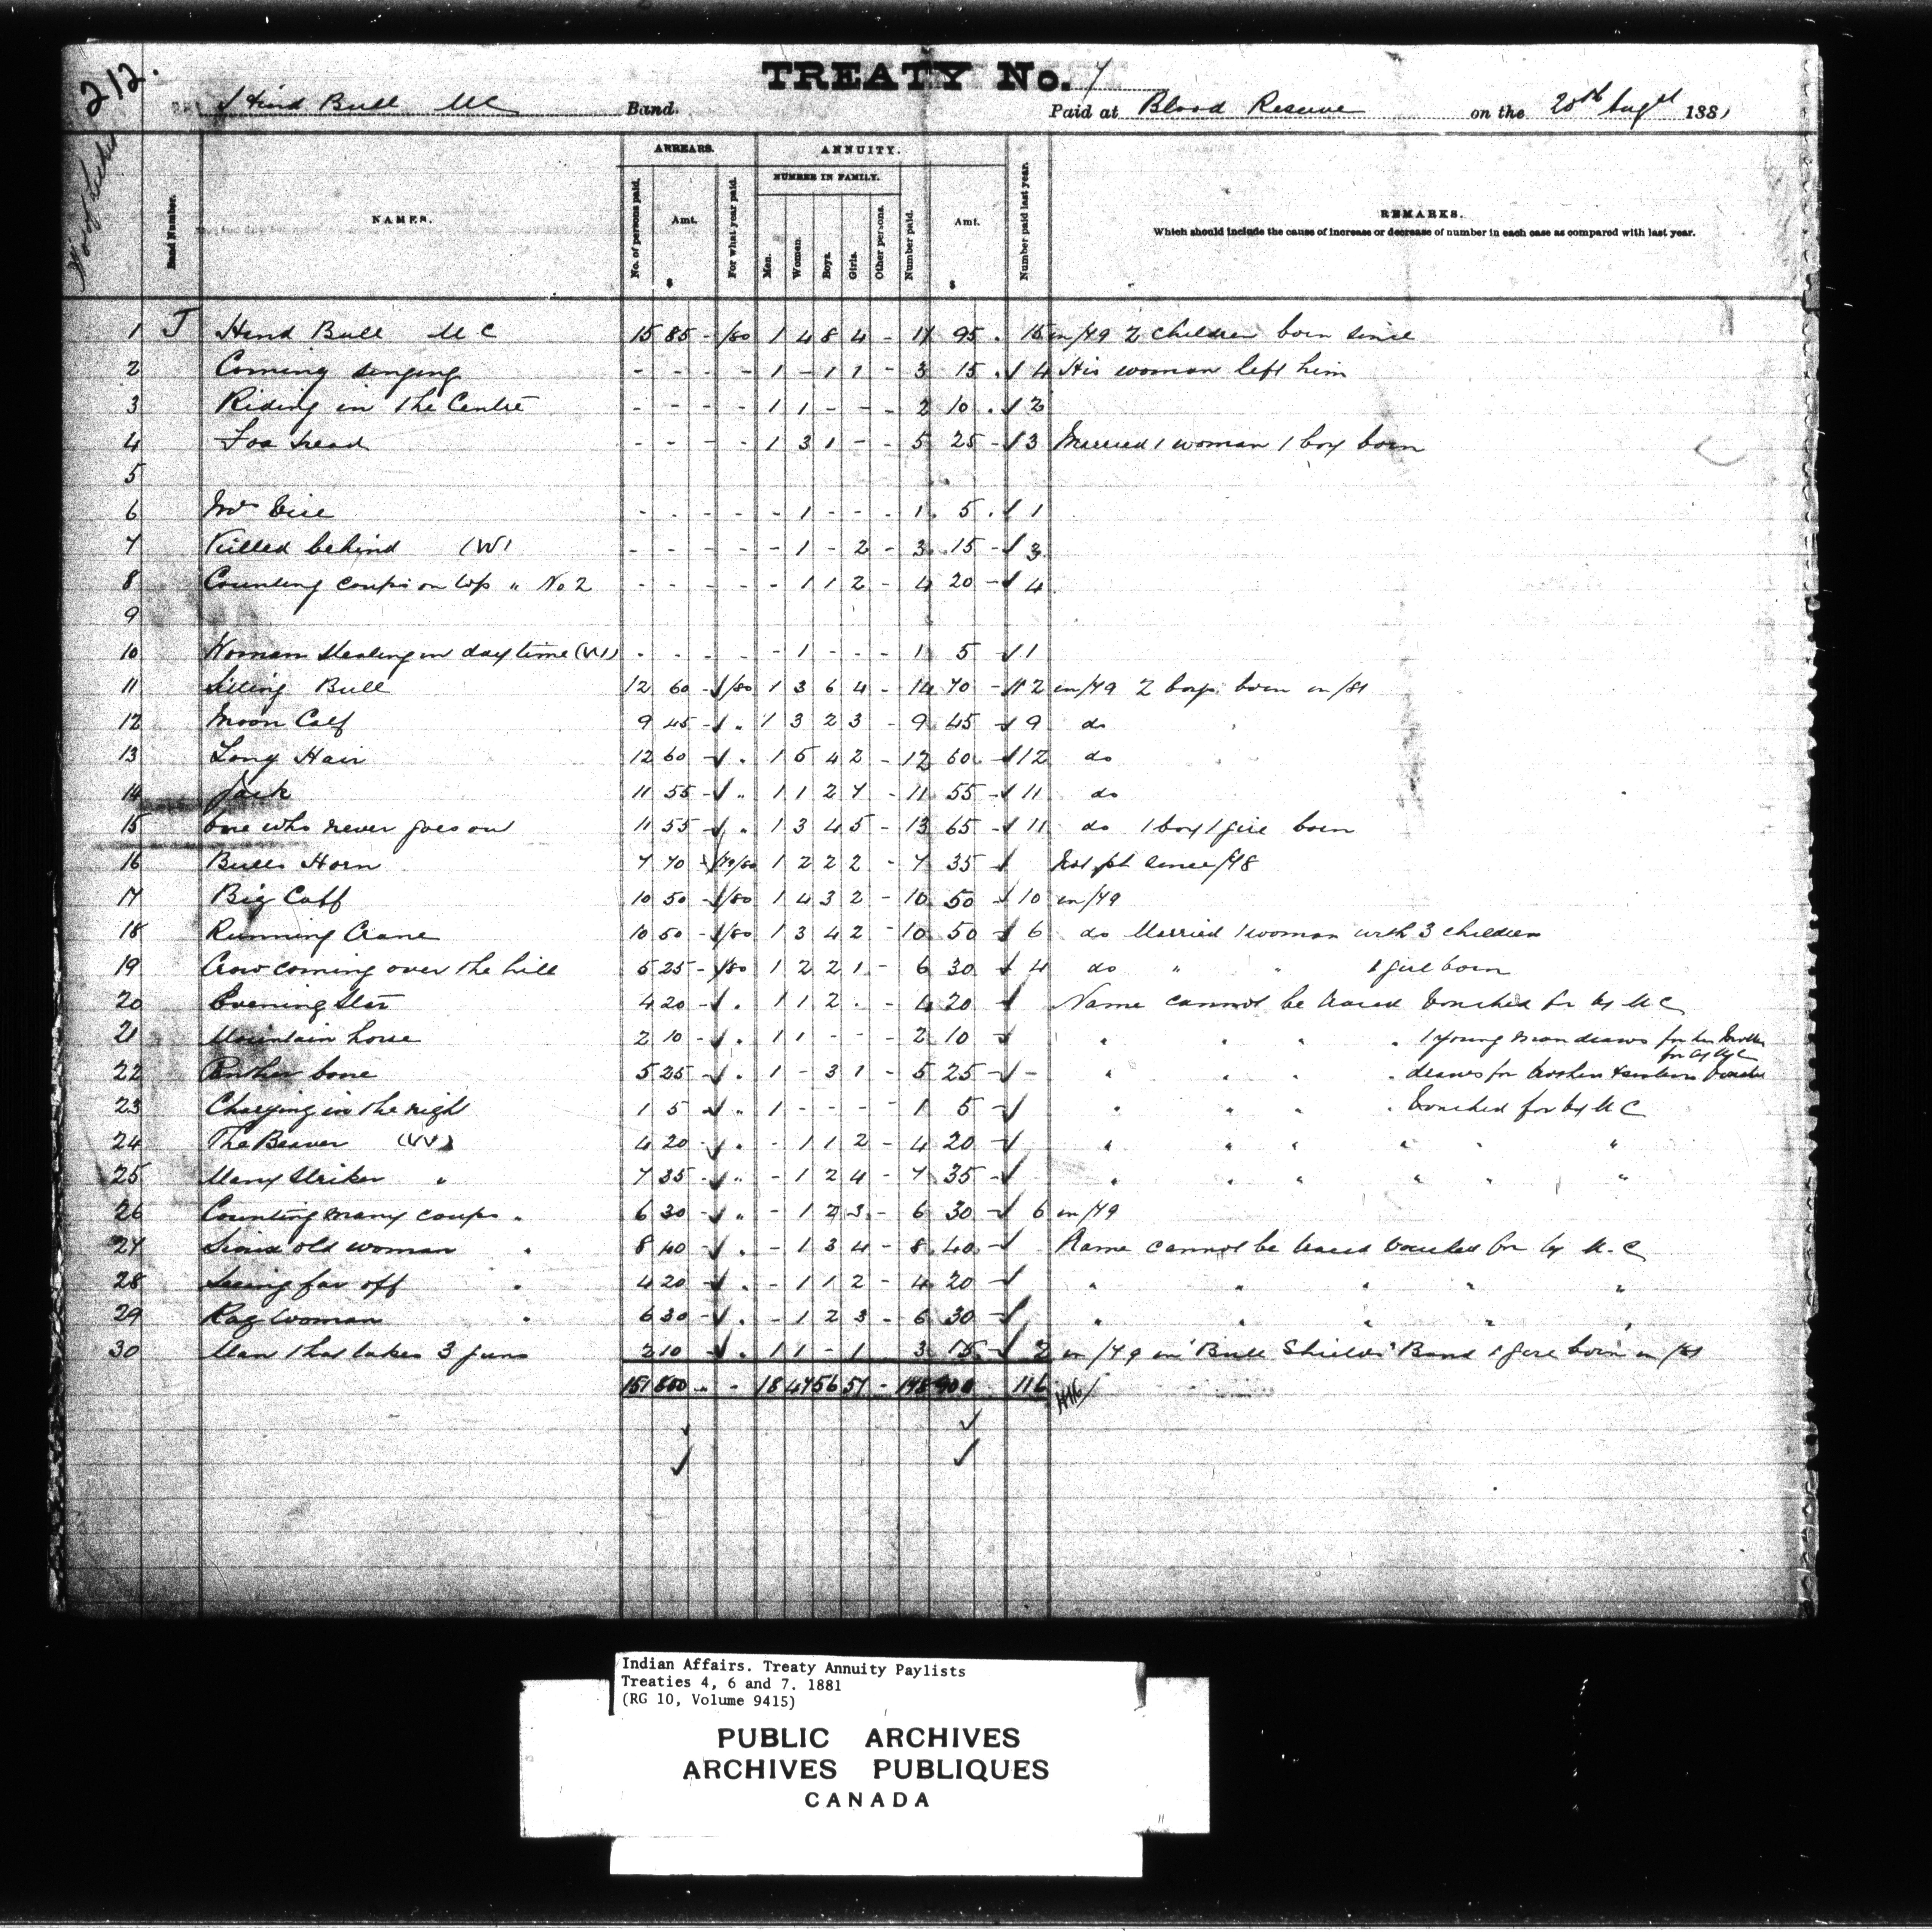 212.
TREATY No. 7
Hind Bull MC Band. Paid at Blood Reserve on the 20th Augst 1881
No of ticket
Band Number.
NAMES.
ARREARS.
No. of persons paid.
Amt.
$
For what year paid.
ANNUITY.
NUMBER IN FAMILY.
Men.
Women.
Boys.
Girls.
Other persons.
Number paid.
Amt.
$
Number paid last year.
REMARKS.
Which should include the cause of increase or decrease of number in each case as compared with last year.
1 J Hind Bull MC 15 85 - /80 1 4 8 4 - 17 95 . 15 in/79 2 children born since
2 Coming singing - - - - 1 - 1 1 - 3 15 . 4 His woman left him
3 Riding in the Centre - - - - 1 1 - - - 2 10 . 2
4 - - - - 1 3 1 - - 5 25 - 3 Married 1 woman 1 boy born
5
6 - - - - - 1 - - - 1 5 . 1
7 Killed behind (W) - - - - - 1 - 2 - 3 15 - 3
8 Counting coups on top " No 2 - - - - - 1 1 2 - 4 20 - 4
9
10 Woman Stealing in day time (W) - - - - - 1 - - - 1 5 1
11 Sitting Bull 12 60 - /80 1 3 6 4 - 14 70 - 12 in/79 2 boys born in/81
12 Moon Calf 9 45 - " 1 3 2 3 - 9 45 - 9 do
13 Long Hair 12 60 - " 1 5 4 2 - 12 60 - 12 do
14 Jack 11 55 - " 1 1 2 7 - 11 55 - 11 do
15 One who never goes out 11 55 - " 1 3 4 5 - 13 65 - 11 do 1 boy 1 girl born
16 Bulls Horn 7 70 - 79/80 1 2 2 2 - 7 35 - Not pd since/78
17 Big Calf 10 50 - /80 1 4 3 2 - 10 50 - 10 in/79
18 Running Crane 10 50 - /80 1 3 4 2 - 10 50 - 6 do Married 1 woman with 3 children
19 Crow coming over the hill 5 25 - /80 1 2 2 1 - 6 30 - 4 do " " 1 girl born
20 Evening Star 4 20 - " 1 1 2 . - 4 20 - Name cannot be traced Vouched for by MC
21 Mountain horse 2 10 - " 1 1 - - - 2 10 - " " " " 1 young man draws for his Mother
for by MC
22 Panther bone 5 25 - " 1 - 3 1 - 5 25 - - " " " " draws for brothers & sisters Vouched
23 Charging in the night 1 5 - " 1 - - - - 1 5 - " " " " Vouched for by MC
24 The Beaver (W) 4 20 - " - 1 1 2 - 4 20 - " " " " " "
25 Many Striker " 7 35 - " - 1 2 4 - 7 35 - " " " " " "
26 Counting many coups " 6 30 - " - 1 2 3 - 6 30 - 6 in/79
27 Sioux old woman " 8 40 - " - 1 3 4 - 8 40 - Name cannot be traced Vouched for by M.C
28 Seeing far off " 4 20 - " - 1 1 2 - 4 20 - " " " " "
29 Rag Woman " 6 30 - " - 1 2 3 - 6 30 - " " " " "
30 Man that takes 3 guns 2 10 - " 1 1 - 1 3 15 - 2 in/79 in "Bull Shields" Band 1 girl born in/81
151 800 - - 18 47 56 57 - 178 900 116
Indian Affairs. Treaty Annuity Paylists
Treaties 4, 6 and 7. 1881
(RG 10, Volume 9415)
PUBLIC ARCHIVES
ARCHIVES PUBLIQUES
CANADA